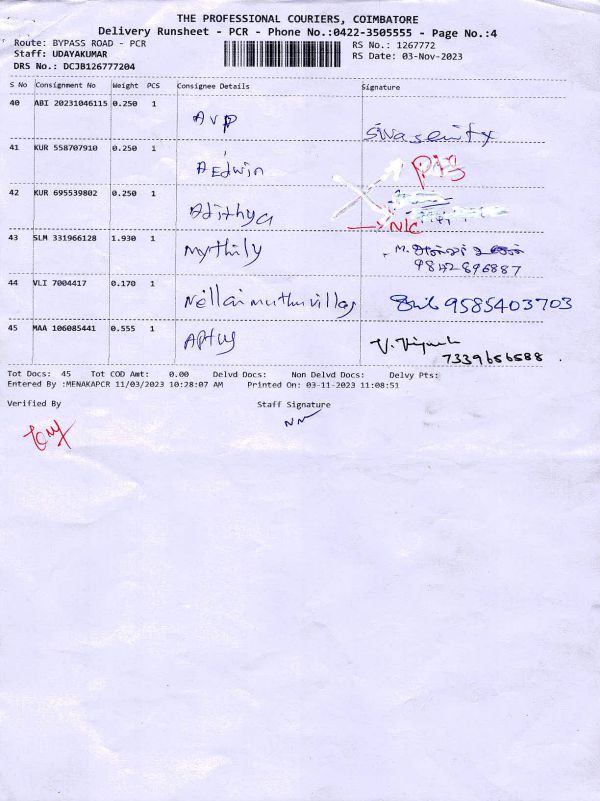 THE PROFESSIONAL COURIERS, COIMBATORE
Delivery Runsheet - PCR - Phone No.:0422-3505555 - Page No.:4
Route: BYPASS ROAD - PCR
RS No.: 1267772
Staff: UDAYAKUMAR
RS Date: 03-Nov-2023
DRS No.: DCJB126777204
S No Consignment No Weight PCS Consignee Details Signature
40 ABI 20231046115 0.250 1 AVP
41 KUR 558707910 0.250 1 AEdwin
42 KUR 695539802 0.250 1 Adithya
N/C
43 SLM 331966128 1.930 1 Mythily M.
9842896887
44 VLI 7004417 0.170 1 Nellaimuthuvillas 9585403703
45 MAA 106085441 0.555 1 Aptus V. Vignesh
7339656588
Tot Docs: 45 Tot COD Amt: 0.00 Delvd Docs: Non Delvd Docs: Delvy Pts:
Entered By :MENAKAPCR 11/03/2023 10:28:07 AM Printed On: 03-11-2023 11:08:51
Verified By Staff Signature